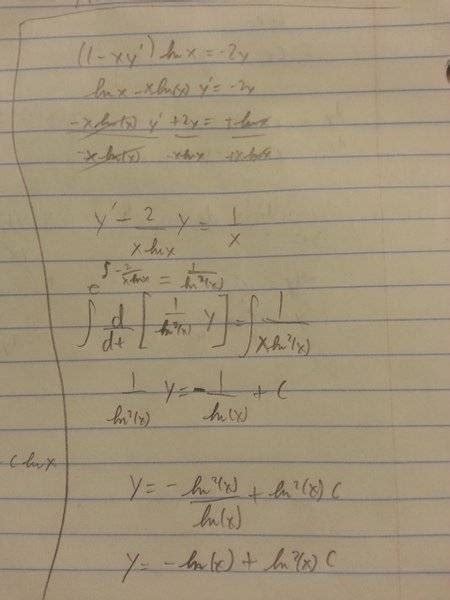 (1 - xy') ln x = -2y
ln x - x ln(x) y' = -2y
-x ln(x) y' + 2y = - ln x
-x ln(x) -x ln x -x ln x
y' - 2/(x ln x) y = 1/x
e^∫ -2/(x ln x) = 1/(ln²(x))
∫ d/dt [ 1/(ln²(x)) y ] = ∫ 1/(x ln²(x))
1/(ln²(x)) y = - 1/(ln(x)) + C
C ln x
y = - ln²(x)/ln(x) + ln²(x) C
y = - ln(x) + ln²(x) C